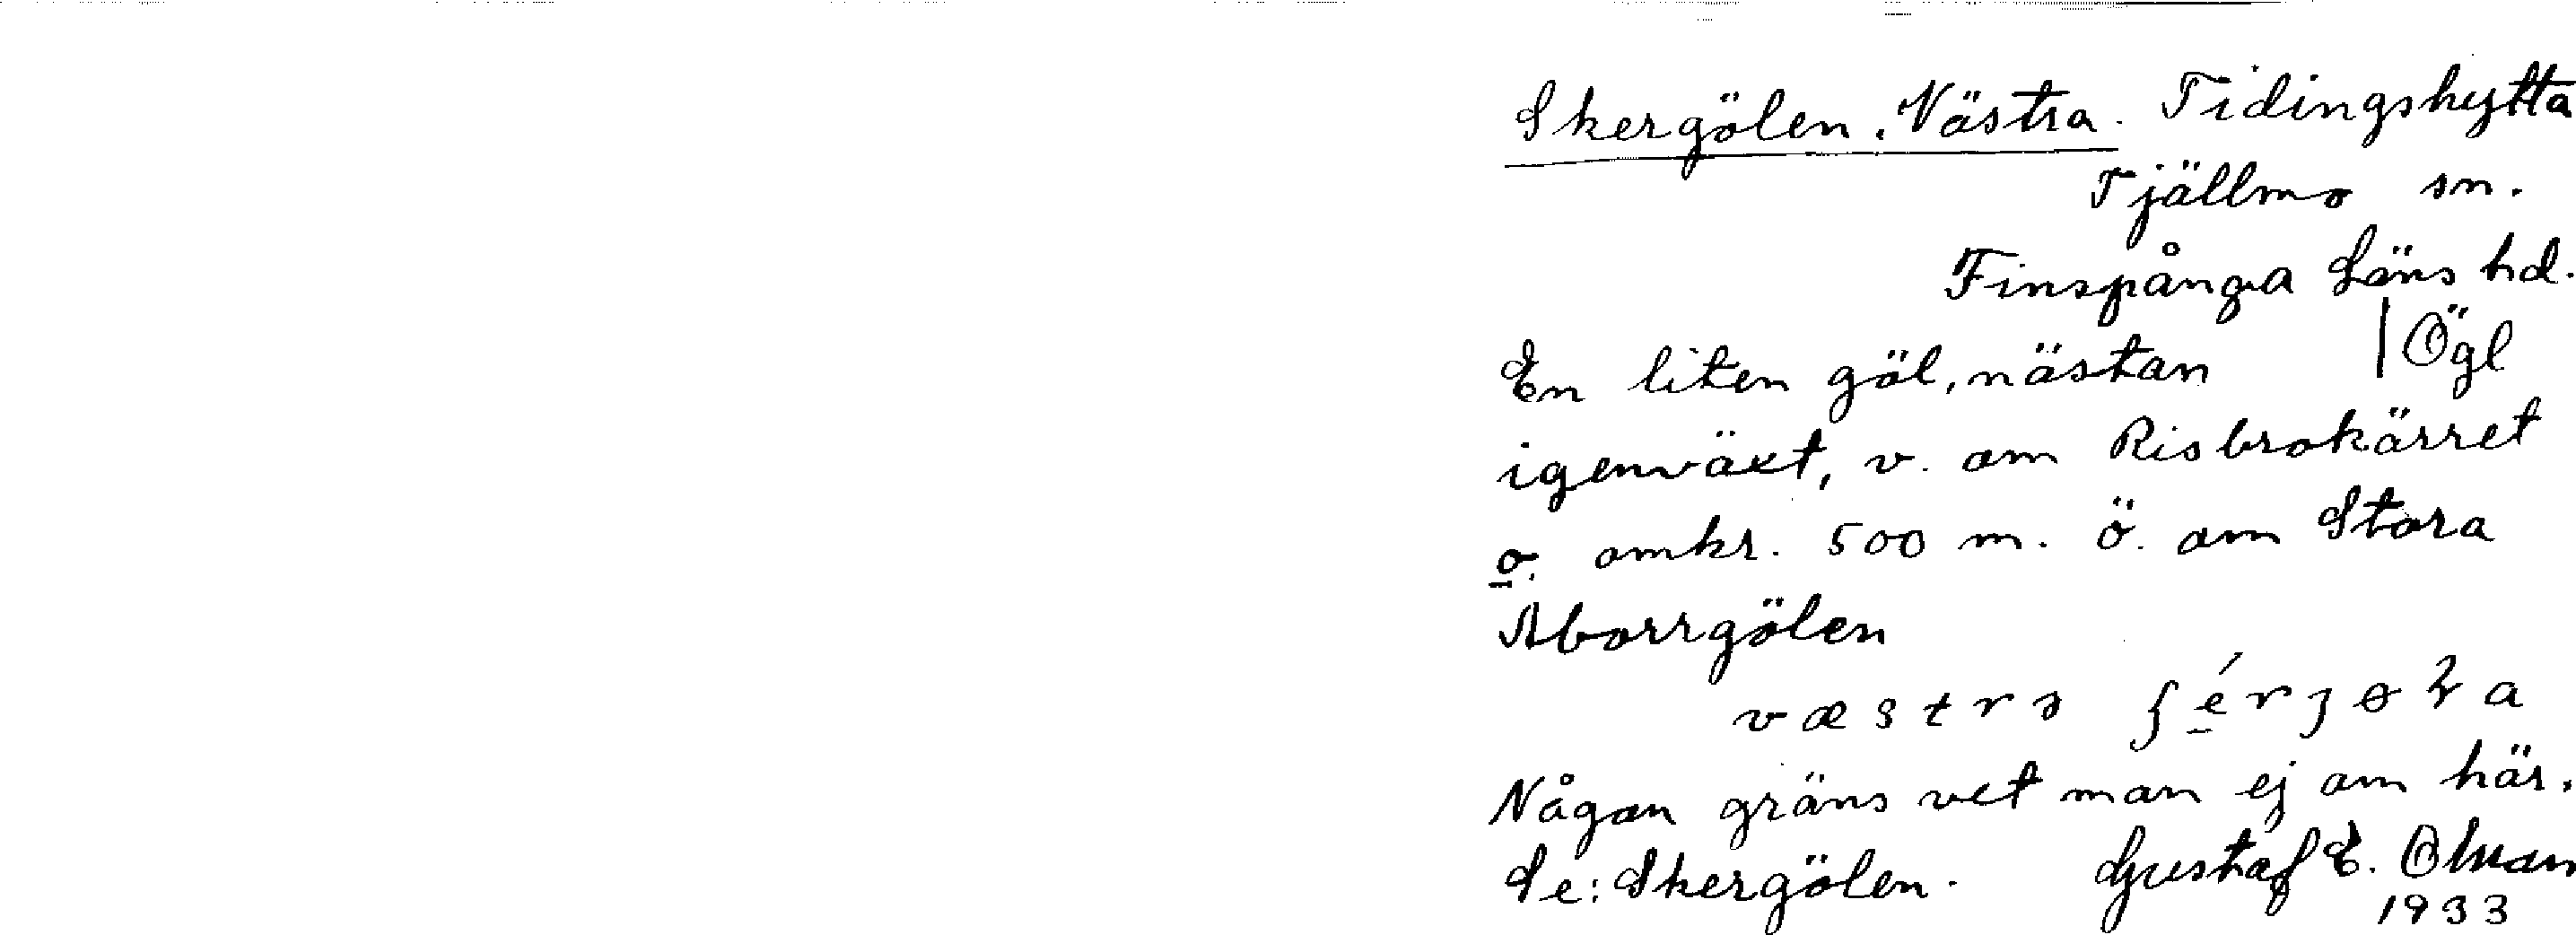 Skergölen, Västra. Tidingshytta
Tjällmo sn.
Finspånga Läns hd.
En liten göl, nästan | Ögl
igenväxt, v. om Risbrokärret
o. omkr. 500 m. ö. om Stora
Aborrgölen
Någon gräns vet man ej om här.
Se: Skergölen. Gustaf E.
1933